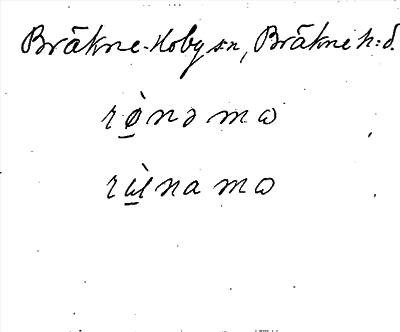 Bräkne-Hoby sn, Bräkne h:d.
rø̲̀nəmɷ
rɯ̲̀namɷ